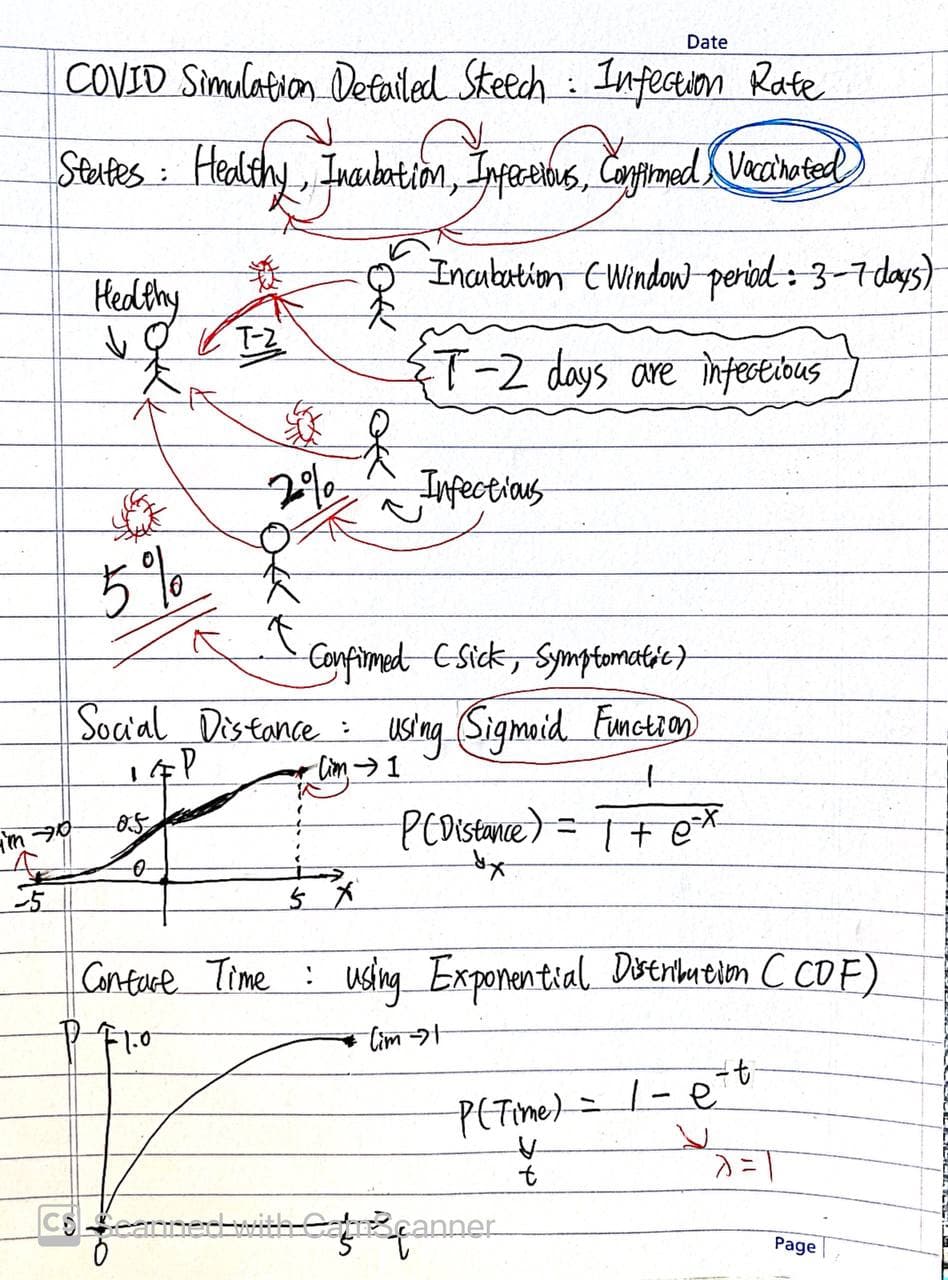 Date
COVID Simulation Detailed Skeech : Infection Rate
States : Healthy, Incubation, Infectious, Confirmed, Vaccinated
Incubation (Window period : 3-7 days)
Healthy
T-2
T-2 days are infectious
2%
Infectious
5%
Confirmed (Sick, Symptomatic)
Social Distance : using Sigmoid Function
1 P lim → 1
0.5
lim → 0
0
-5 5 X
P(Distance) = 1 / 1 + e^-x
x
Contact Time : using Exponential Distribution (CDF)
P 1.0 lim → 1
P(Time) = 1 - e^-t
t
λ = 1
0
0 5 t
CS Scanned with CamScanner
Page